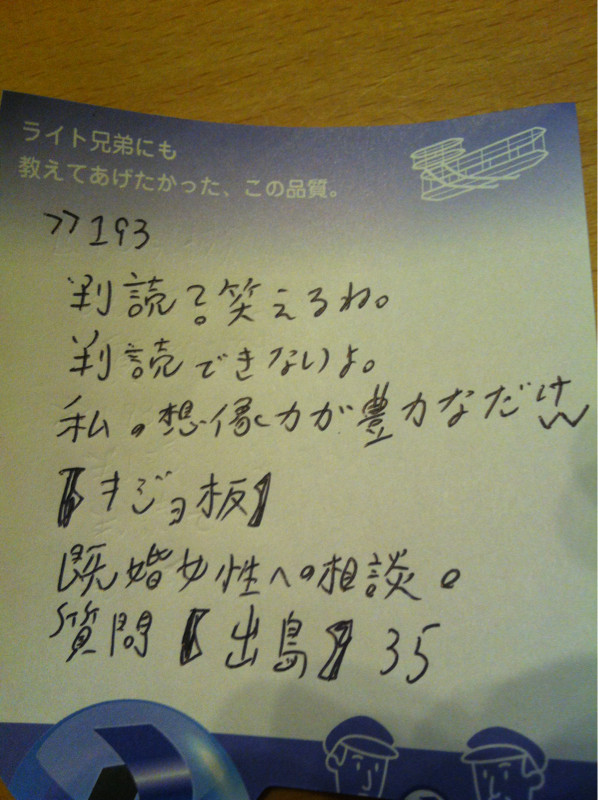 ライト兄弟にも
教えてあげたかった、この品質。
>>193
判読?笑えるね。
判読できないよ。
私の想像力が豊力なだけw
【キジョ板】
既婚女性への相談。
質問【出島】35